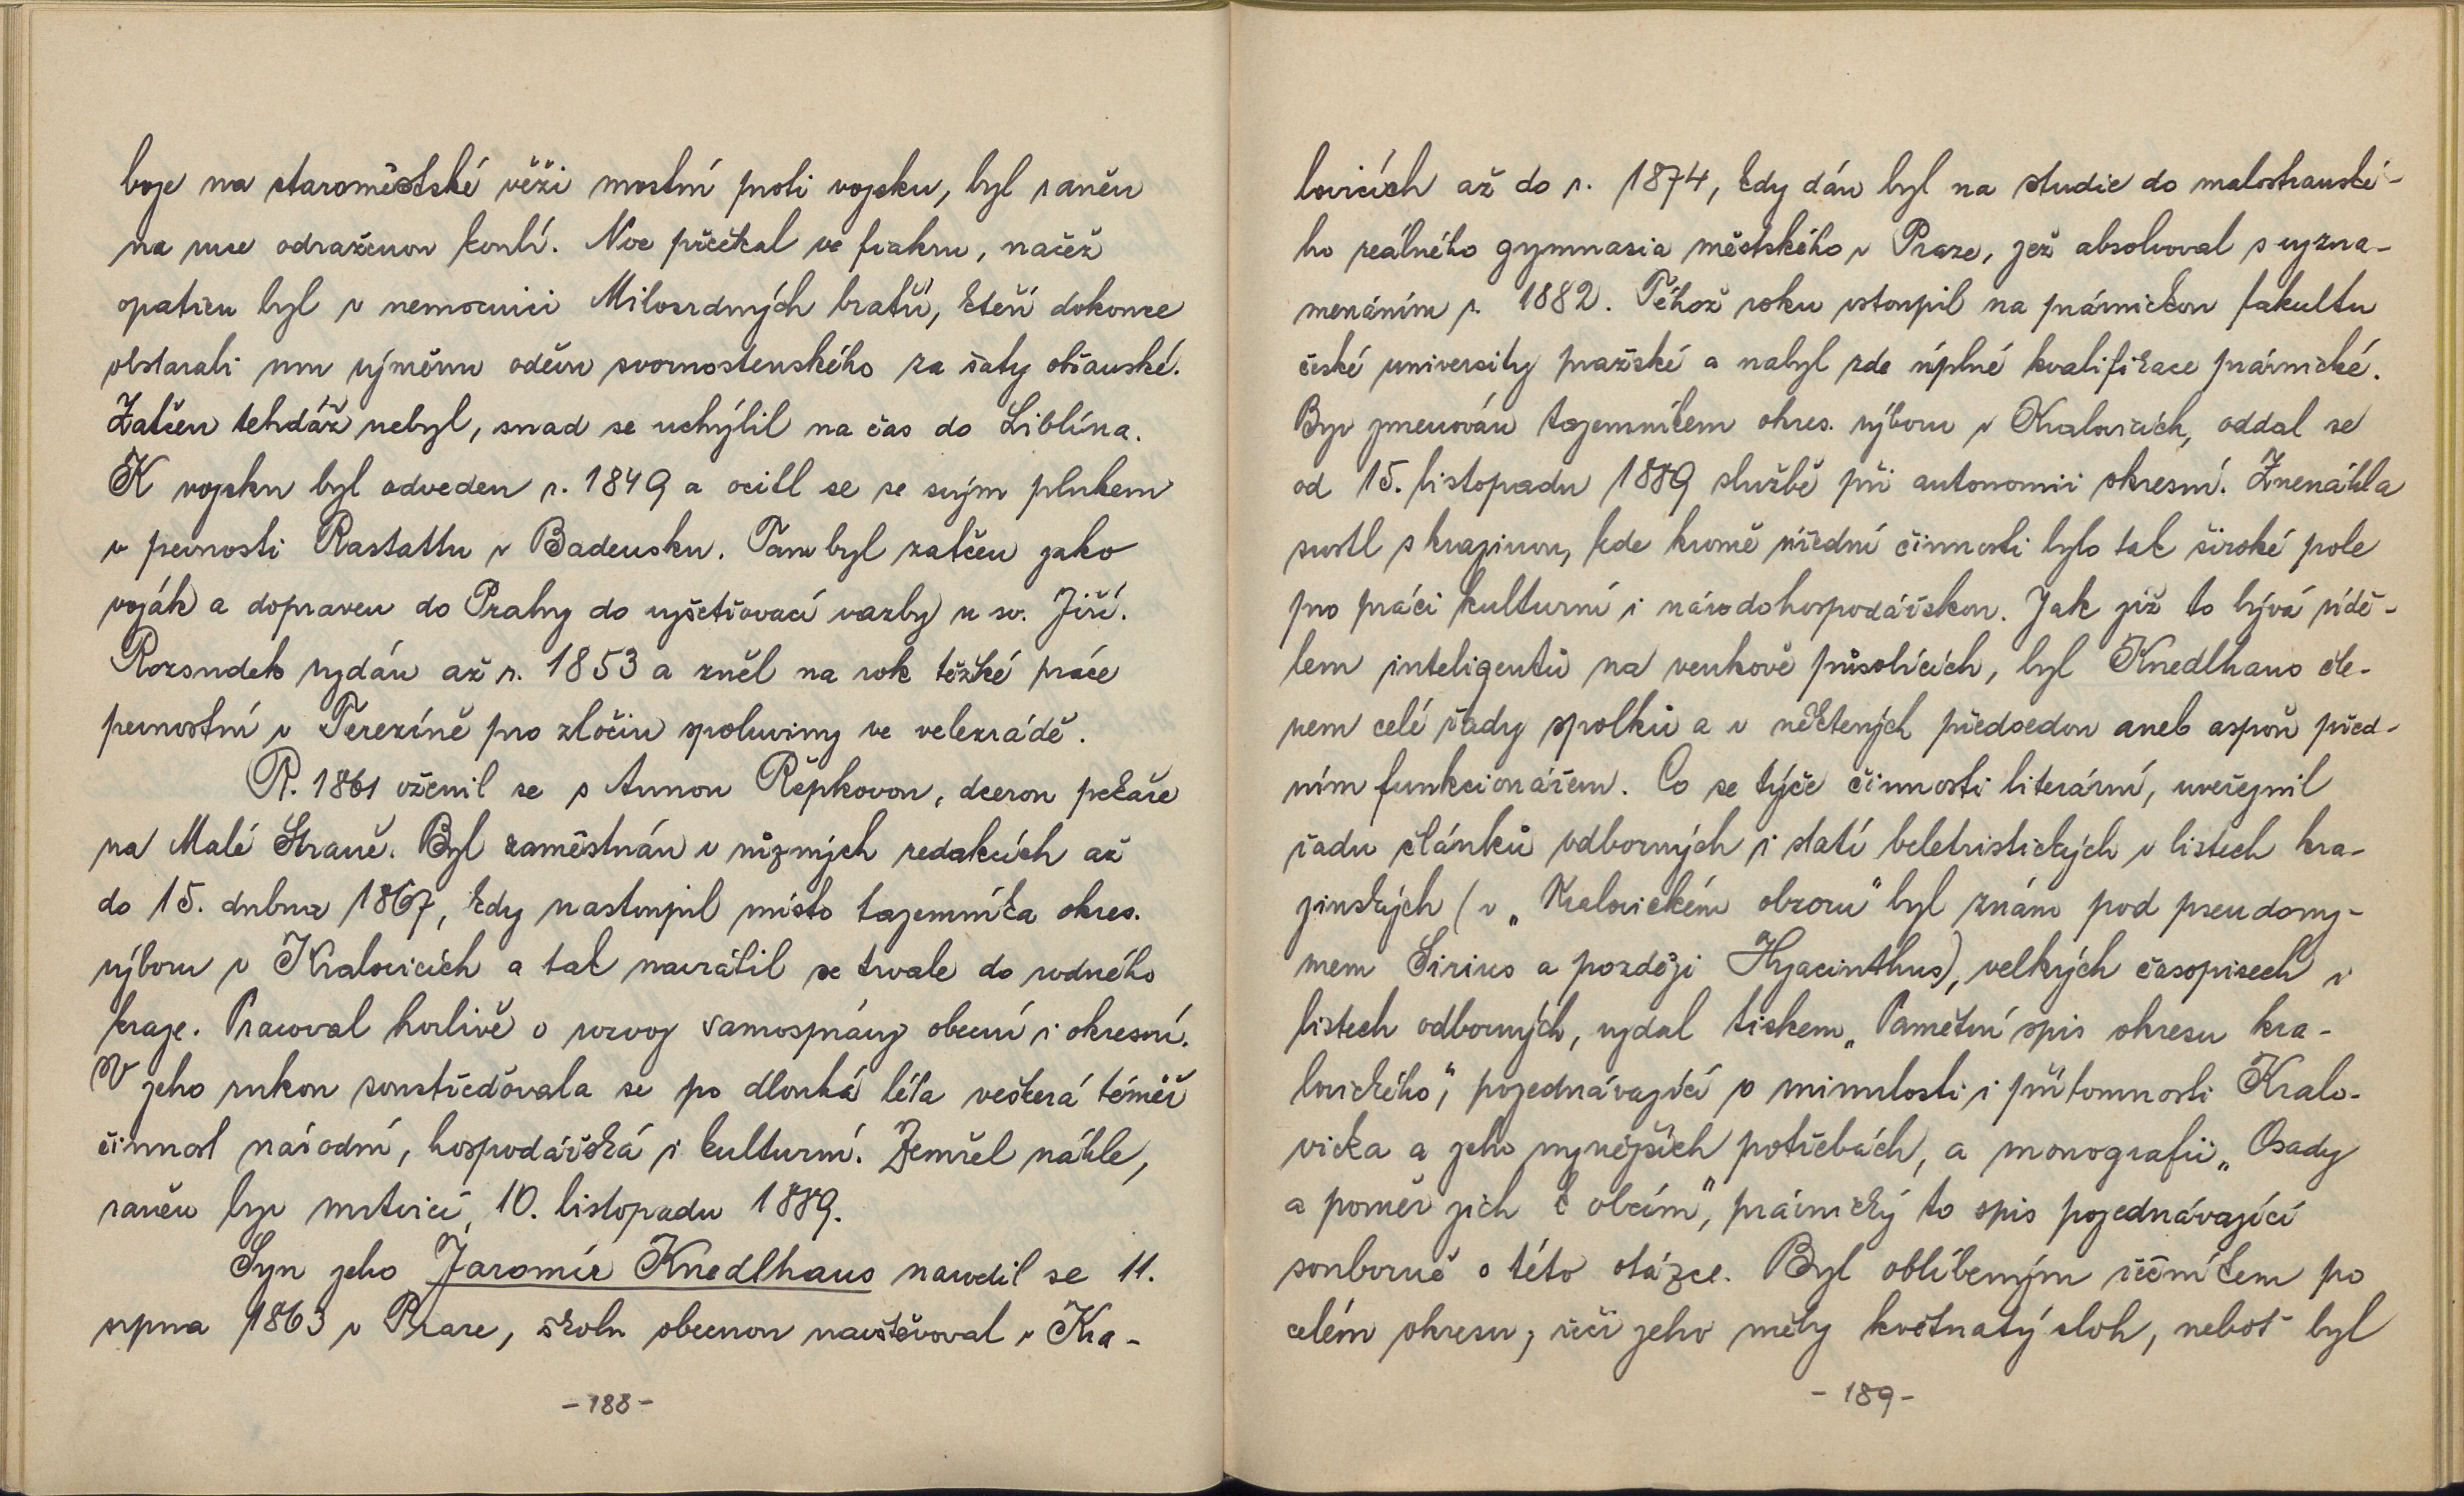 boje na staroměstské věži mostní proti vojsku, byl raněn
na ruce odraženou koulí. Noc přečkal ve fiakru, načež
opatřen byl v nemocnici Milosrdných bratří, kteří dokonce
obstarali mu výměnu oděvu svornostenského za šaty občanské.
Zatčen tehdáž nebyl, snad se uchýlil na čas do Liblína.
K vojsku byl odveden r. 1849 a ocitl se se svým plukem
v pevnosti Rastattu v Badensku. Tam byl zatčen jako
voják a dopraven do Prahy do vyšetřovací vazby u sv. Jiří.
Rozsudek vydán až r. 1853 a zněl na rok těžké práce
pevnostní v Terezíně pro zločin spoluviny ve velezrádě.
R. 1861 oženil se s Annou Řepkovou, dcerou pekaře
na Malé Straně. Byl zaměstnán v různých redakcích až
do 15. dubna 1867, kdy nastoupil místo tajemníka okres.
výboru v Kralovicích a tak navrátil se trvale do rodného
kraje. Pracoval horlivě o rozvoj samosprávy obecní i okresní.
V jeho rukou soustřeďovala se po dlouhá léta veškerá téměř
činnost národní, hospodářská i kulturní. Zemřel náhle,
raněn byv mrtvicí, 10. listopadu 1889.
Syn jeho Jaromír Knedlhans narodil se 11.
srpna 1863 v Praze, školu obecnou navštěvoval v Kra-
-188-
lovicích až do r. 1874, kdy dán byl na studie do malostranské-
ho reálného gymnasia městského v Praze, jež absolvoval s vyzna-
menáním r. 1882. Téhož roku vstoupil na právnickou fakultu
české university pražské a nabyl zde úplné kvalifikace právnické.
Byv jmenován tajemníkem okres. výboru v Kralovicích, oddal se
od 15. listopadu 1889 službě při autonomii okresní. Znenáhla
srostl s krajinou, kde kromě úřední činnosti bylo tak široké pole
pro práci kulturní i národohospodářskou. Jak již to bývá údě-
lem inteligentů na venkově působících, byl Knedlhans čle-
nem celé řady spolků a v některých předsedou aneb aspoň před-
ním funkcionářem. Co se týče činnosti literární, uveřejnil
řadu článků odborných i statí beletristických v listech kra-
jinských (v „Kralovickém obzoru" byl znám pod pseudony-
mem Sirius a později Hyacinthus), velkých časopisech v
listech odborných, vydal tiskem „Pamětní spis okresu kra-
lovického", pojednávající o minulosti i přítomnosti Kralo-
vicka a jeho nynějších potřebách, a monografii „Osady
a poměr jich k obcím", právnický to spis pojednávající
souborně o této otázce. Byl oblíbeným řečníkem po
celém okresu; řeči jeho měly květnatý sloh, neboť byl
-189-